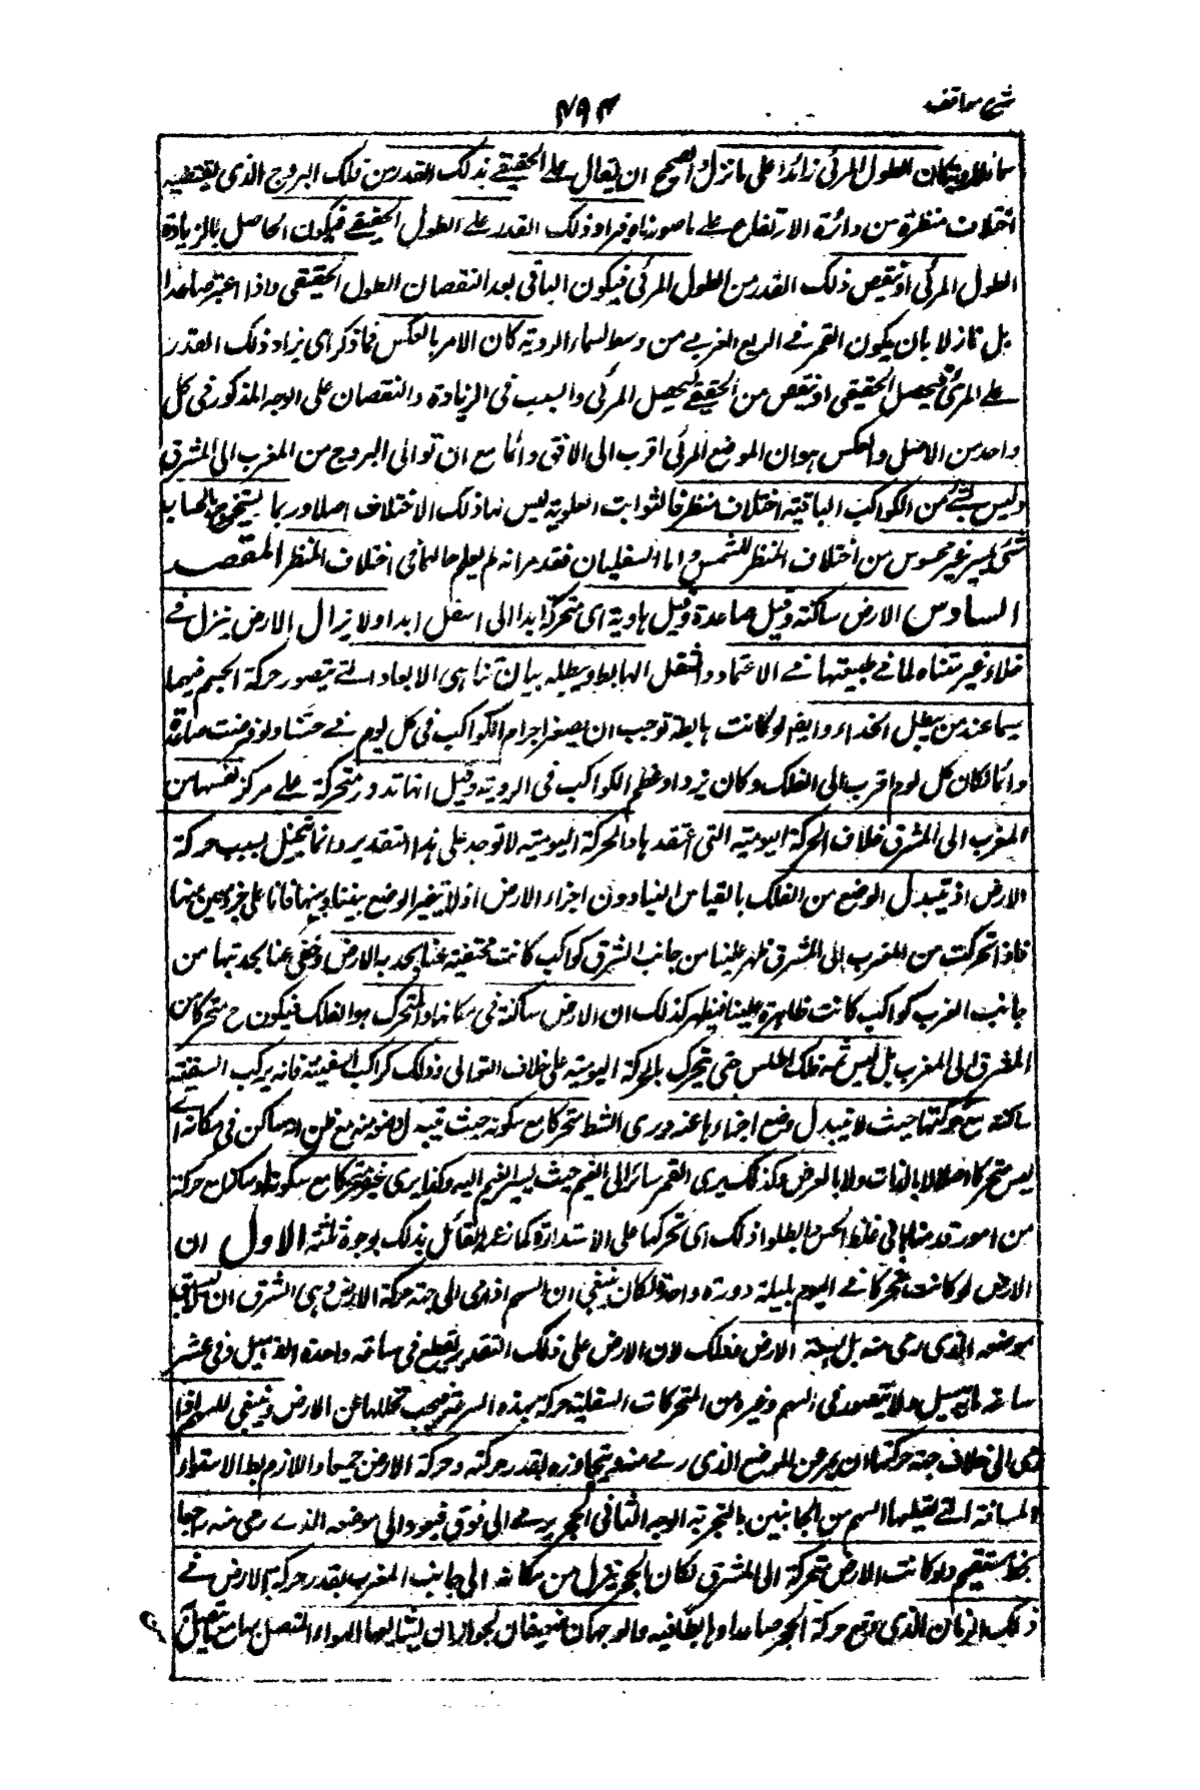 شرح مواقف
۴۹۴
الطول المرئى زائدا على ما نزل الصحيح ان يقال على الحقيقے بذلک القدر من فلک البروج الذى يقتضيه
اختلاف منظره من دائرة الارتفاع على ما صورناه فيزاد ذلک القدر على الطول الحقيقے فيکون الحاصل بالزيادة
الطول المرئى او ينقص ذلک القدر من الطول المرئى فيکون الباقى بعد النقصان الطول الحقيقى واذا اعتبر صاعدا
بل نازلا بان يکون القمر فے الربع الغربے من وسط سماء الروية کان الامر بالعکس فما ذکر اى يزاد ذلک القدر
علے المرئى فيحصل الحقيقى او ينقص من الحقيقے ليحصل المرئى والسبب فى الزيادة والنقصان على الوجه المذکور فى کل
واحد من الاصل والعکس هو ان الموضع المرئى اقرب الى الافق دائما مع ان توالى البروج من المغرب الى المشرق
وليس لشئ من الکواکب الباقية اختلاف منظر فالثوابت العلوية ليس لها ذلک الاختلاف اصلا وربما يستخرج بالحساب
شئ يسير غير محسوس من اختلاف المنظر للشمس واما السفليان فقد مر انه لم يعلم حالهما فى اختلاف المنظر المقصد
السادس الارض ساکنة وقيل صاعدة وقيل هاوية اى متحرکة ابدا الى اسفل ابدا ولا يزال الارض ينزل فے
خلاء غير متناه لما فے طبيعتها من الاعتماد والثقل الهابط ويبطله بيان تناهى الابعاد التے يتصور حرکة الجسم فيها
سيما عند من يبطل الخلاء وايضا لو کانت هابطة لوجب ان يصغر اجرام الکواکب فى کل يوم فے حسنا ولو فرضت صاعدة
دائما لکان کل يوم اقرب الى الفلک وکان يزداد عظم الکواکب فى الروية وقيل انها تدور متحرکة علے مرکز نفسها من
المغرب الى المشرق خلاف الحرکة اليومية التى اعتقدها والحرکة اليومية لا توجد على هذا التقدير وانما تتخيل بسبب حرکة
الارض اذ يتبدل الوضع من الفلک بالقياس الينا دون اجزاء الارض اذ لا يتغير الوضع بيننا وبينها فانا على جزء معين منها
فاذا تحرکت من المغرب الى المشرق ظهر علينا من جانب الشرق کواکب کانت مختفية عنا بحدبه الارض وخفى عنا بحدبتها من
جانب الغرب کواکب کانت ظاهرة علينا فيظهر کذلک ان الارض ساکنة فى مکانها والمتحرک هو الفلک فيکون ح متحرکا من
المشرق الى المغرب بل ليس ثمه فلک اطلس حتى يتحرک بالحرکة اليومية على خلاف التوالى وذلک کراکب السفينة فانه يرکب السفينة
ساکنة مع حرکتها حيث لا يتبدل وضع اجزاءها عنده ويرى الشط متحرکا مع سکونه حيث يتبدل وضعه منه مع ظن انه ساکن فى مکانه اے
ليس متحرکا اصلا لا بالذات ولا بالعرض وکذلک يرى القمر سائرا الى الغيم حيث يسير الغيم اليه وکذا يرى غيره متحرکا مع سکونه او ساکنا مع حرکة
من امور قدمناها فى غلط الحس وابطلوا ذلک اى تحرکها على الاستدارة کما زعمه القائل بذلک بوجوه ثلثة الاول ان
الارض لو کانت متحرکة فے اليوم بليلة دورة واحدة لکان ينبغى ان السهم اذا رمى الى جهة حرکة الارض وهى الشرق ان لا يسبق
موضعه الذى رمى منه بل يسبقه الارض فذلک لان الارض على ذلک التقدير يقطع فى ساعة واحدة الف ميل وفى عشر
ساعة مائة ميل ولا يتصور فى السهم وغيره من المتحرکات السفلية حرکة بهذه السرعة فيجب تخللها عن الارض وينبغى للسهم اذا
رمى الى خلاف جهة حرکتها ان يمر عن الموضع الذى رمے منه ويتجاوزه بقدر حرکته وحرکة الارض جميعا واللازم بط لاستواء
المسافة التے يقطعها السهم من الجانبين بالتجربة الوجه الثانى الحجر يرمے الى فوق فيعود الى موضعه الذے رمى منه راجعا
بخط مستقيم ولو کانت الارض متحرکة الى المشرق لکان الحجر ينزل من مکانه الى جانب المغرب بقدر حرکة الارض فے
ذلک الزمان الذى وقع حرکة الحجر صاعدا وهابطا فيه والوجهان ضعيفان لجواز ان يشايعها الهواء المتصل بها مع ما يتصل